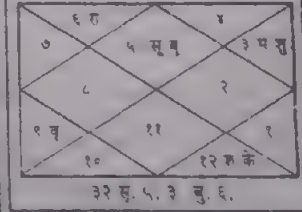 ६ रा
४
७
५ सू बु
३ मं शु
८
२
९ वृ
११
१
१०
१२ श के
३२ सू. ५. ३ बु. ६.